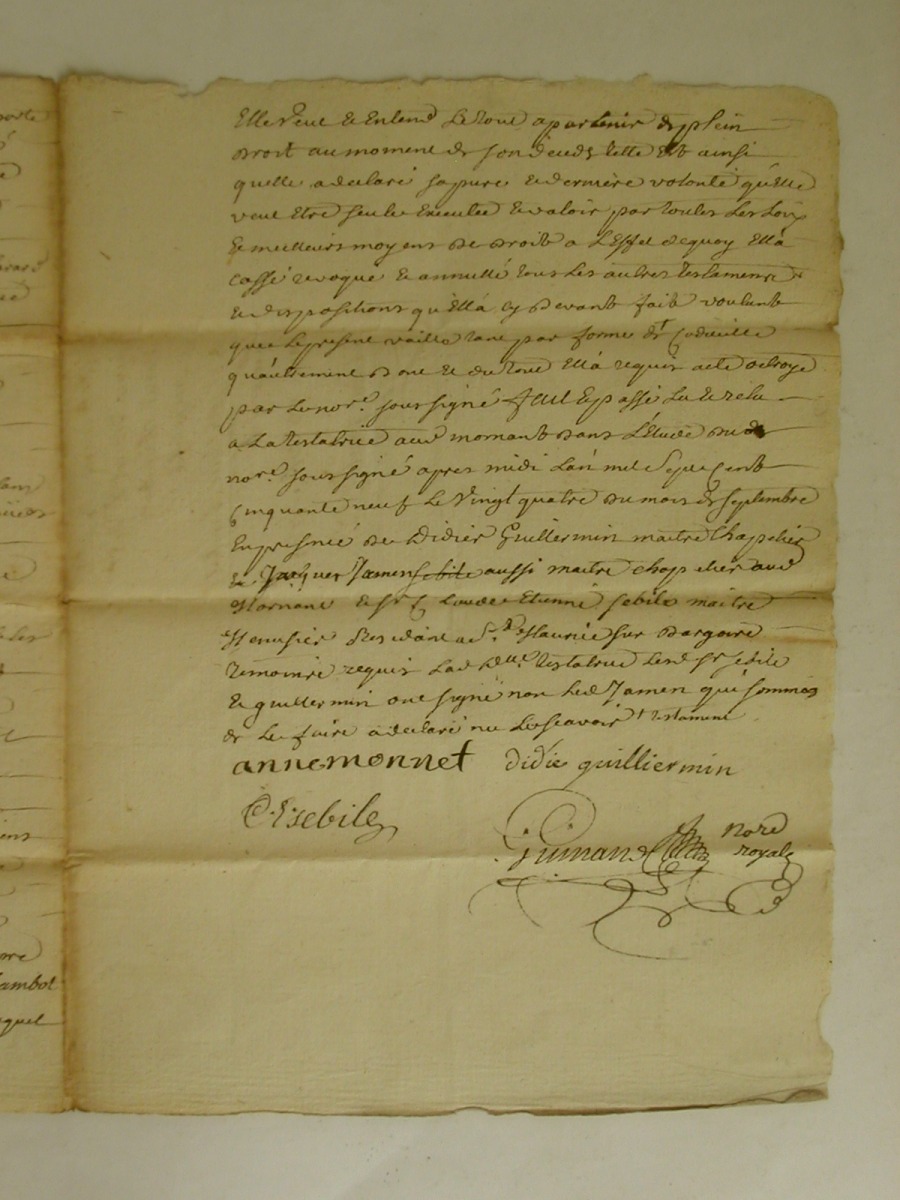 Elle veut et entend le tout apartenir de plein
droit au moment de son deceds telle est ainsi
quelle a declaré sa pure et derniere volonté qu'elle
veut etre seule executée et valoir par toutes les loix
et meilleurs moyens de droit a l'effet dequoy ella
cassé revoqué et annullé tous les autres testaments
et dispositions qu'ella cy devant fait voulant
que le present vaille tant par forme de codicille
qu'autrement donc et du tout ella requis acte octroyé
par le nore. soussigné fait et passé lu et relu
a la testatrice aud mornant dans l'Etude du d
nore. soussigné apres midi l'an mil sept cent
cinquante neuf le vingt quatre du mois de septembre
en presence de didier Guillermin maitre chapelier
et Jacques Jamen sebile aussi maitre chapelier aud
Mornant et sr C laude Etienne sebile maitre
Menusier residant a St. Maurice sur dargoire
temoins requis lad dlle. testatrice lesd sr sebile
et guillermin ont signé non led Jamen qui sommés
de le faire a declaré ne le scavoir testament
anne monnet didie guilliermin
C. E sebile
nore
Guinand royal
pore
ambot
quel